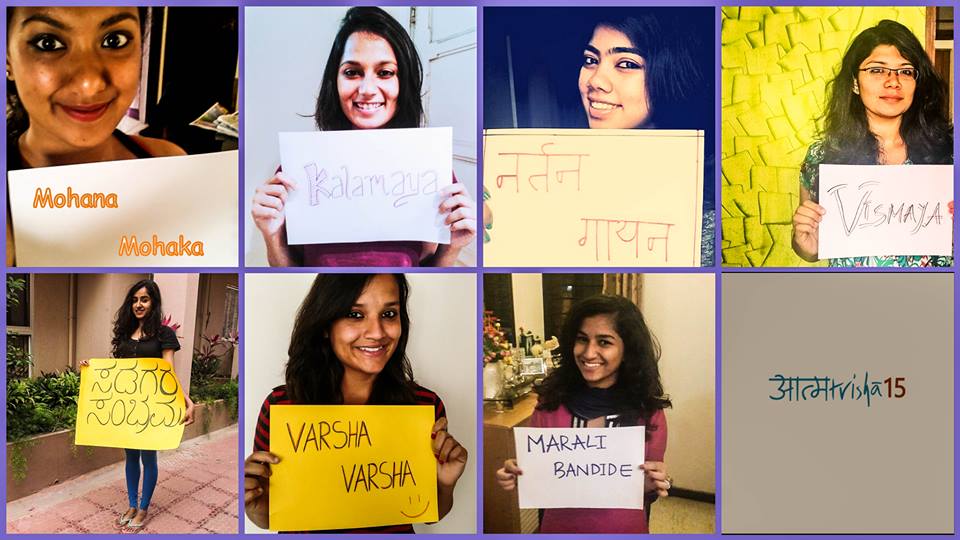 Mohana
Mohaka
Kalamaya
नर्तन
गायन
VISMAYA
ಸಡಗರ
ಸಂಭ್ರಮ
VARSHA
VARSHA
MARALI
BANDIDE
आत्मtrisha15